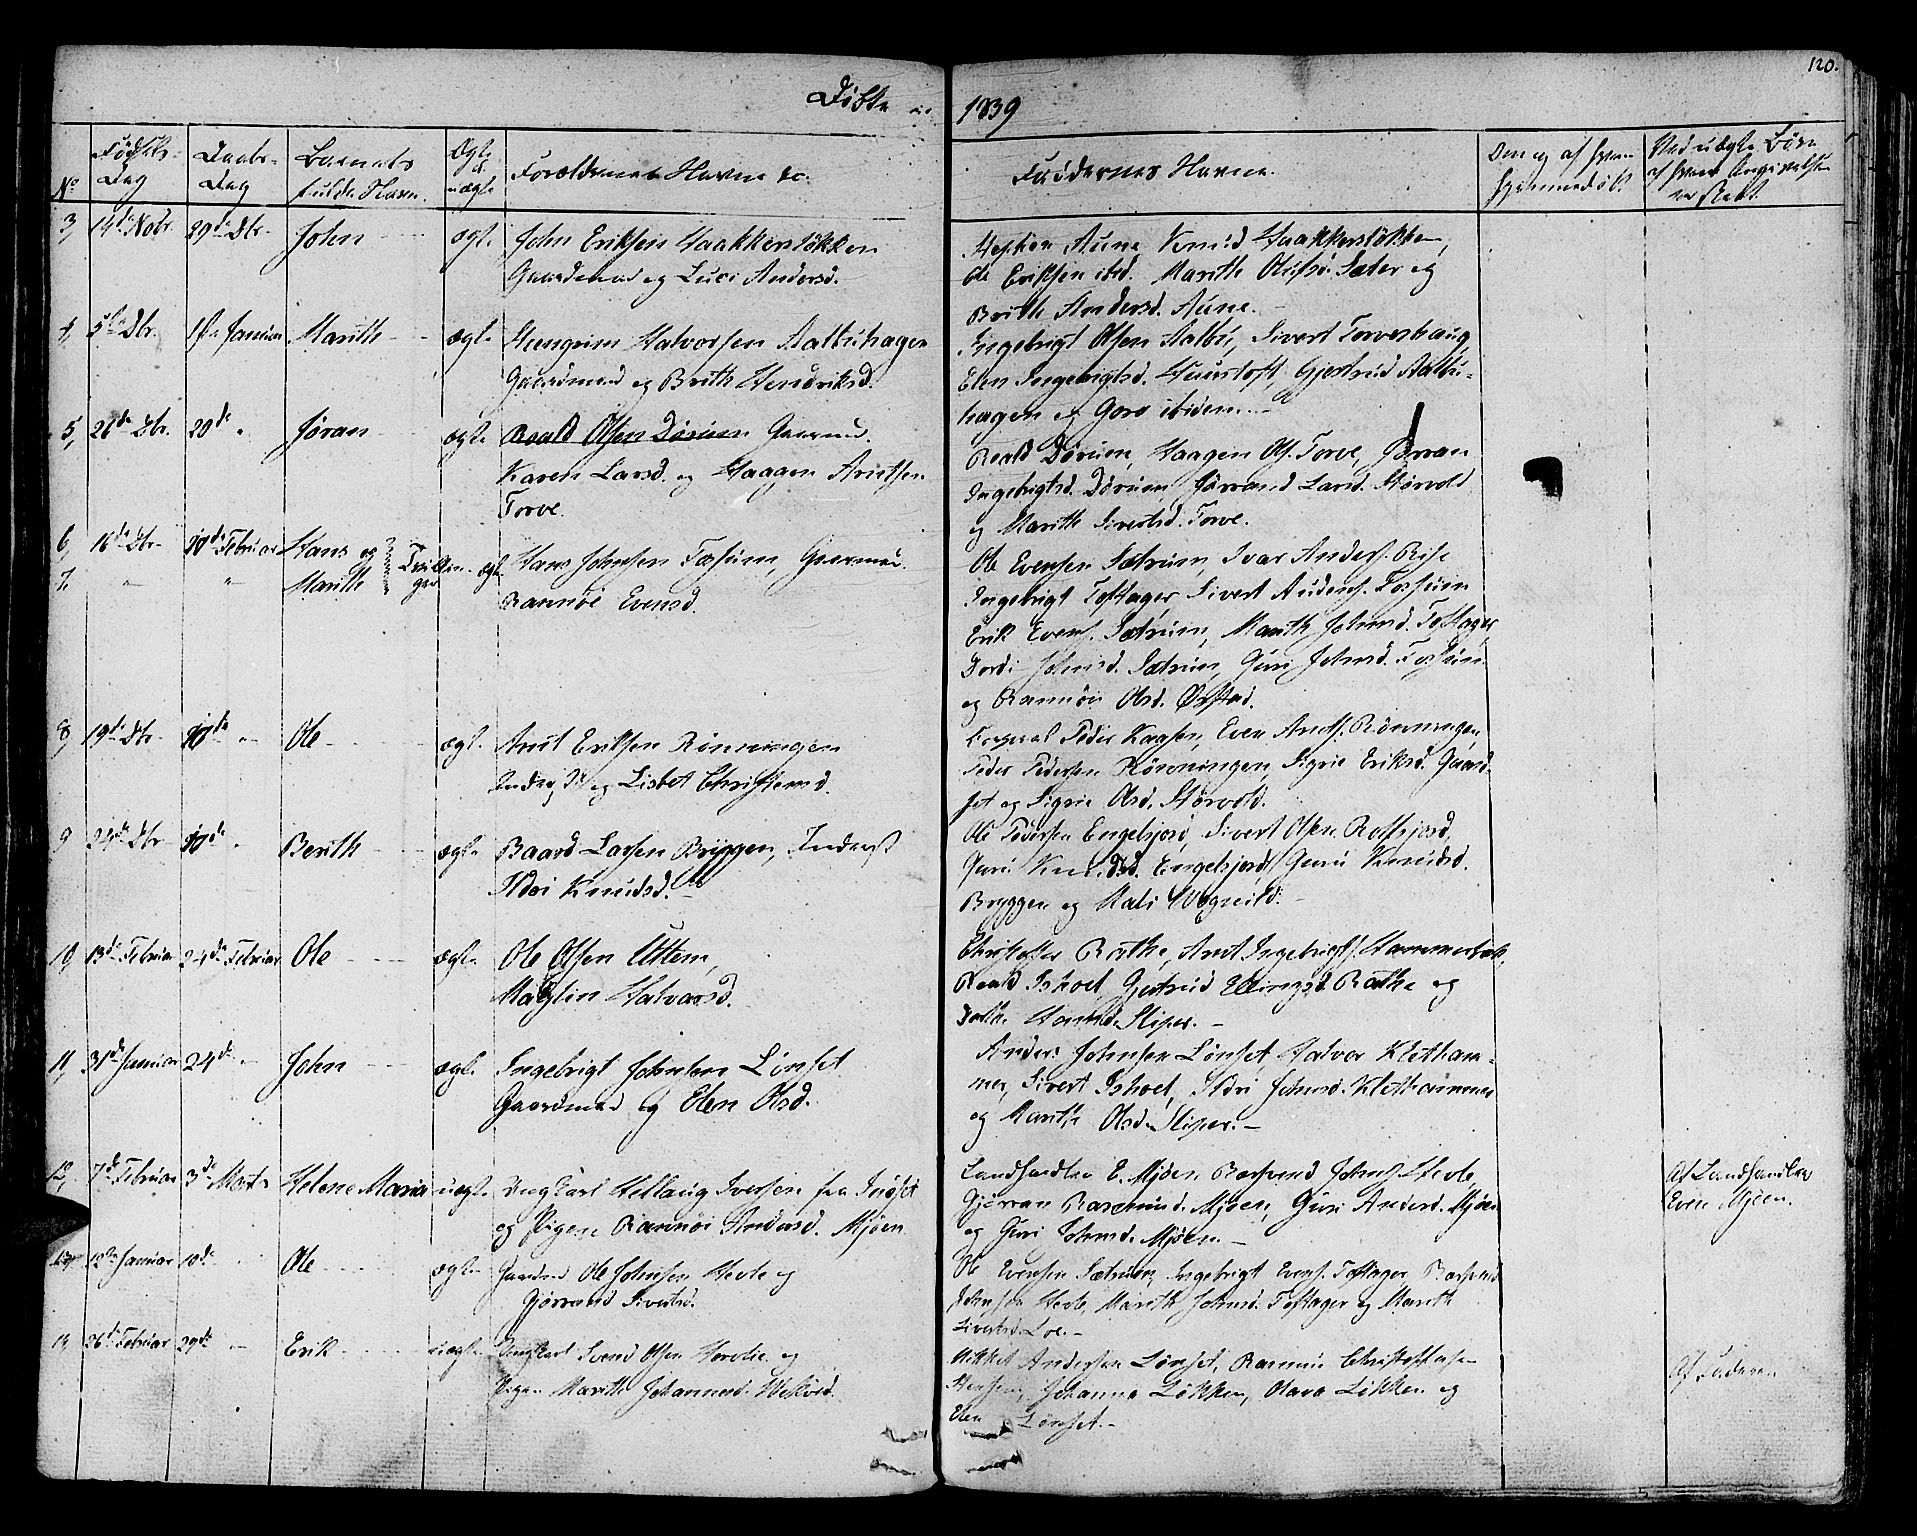 120.
Døbte 1839
No
Fødsels-
Dag
Daabs-
Dag
Barnets
fulde Navn.
Ægte
el.
uægte
Forældrenes Navne &c.
Faddernes Navne.
Om og af hvem
hjemmedøbt
Ved uægte Børn
af hvem Angivelsen
er skeet.
3, 14de Novbr. 29de Dbr. John ægte John Eriksen Haakkersløkken
Gaardmand og Luci Andersd.
Aune Knud Haakkersløkken,
Ole Eriksen ibid. Marith Olufsd. Sæter og
Brith Andersd. Aune.
4, 5te Dbr. 1ste Januar Marith ægte Halvorsen Aalbuhagen
Gaardmand og Brith Hendriksd.
Ingebrigt Olsen Aalbu, Sivert Torveshaug
Elen Ingebrigtsd. Gjertrud Aalbu-
hagen og Goro ibidem.
5, 26de Dbr. 20de " Jøran ægte Roald Olsen Dørum Gaardmd.
Karen Larsd. og Haagen Arntsen
Torve.
Roald Dørum, Haagen Ols. Torve, Jørran
Ingebrigtsd. Dørum Jørrand Larsd. Storvold
og Marith Sivertsd. Torve.
6, 16de Dbr. 10de Februar Hans og Tvillin- ægte Hans Johnsen Fossum, Gaardmd.
7, " " Marith ger Rannøi Evensd.
Ole Evensen Sætrum, Ivar Anders. Rise
Ingebrigt Toftager Sivert Anders. Fossum
Erik Evens. Sætrum, Marith Johnsd. Toftager,
Dordi Johnsd. Sætrum, Guri Johnsd. Fossum
og Rannøi Olsd. Ørstad.
8, 19de Dbr. 10de " Ole ægte Arnt Eriksen Rønningen
Inderst og Lisbet Christensd.
Corporal Peder Kaasen, Even Arnts. Rønningen,
Peder Pedersen Rønningen, Sigrie Eriksd. Gaard-
set og Sigrie Olsd. Storvold.
9 24de Dbr 10de " Berith ægte Baard Larsen Bryggen, Inderst
Ildri Knudsd.
Ole Pedersen Engelsjord, Sivert Olsen Rotsjord,
Guru Knudsd. Engelsjord, Guru Knudsd.
Bryggen og Mali Vognild.
10 13de Februar 24de Februar Ole ægte Ole Olsen Uttem,
Magli n Halvorsd.
Christopher Rathe, Arnt Ingebrigts. Hammerbæk,
Roald Ishoel, Gjertrud Ellingsd. Rathe og
Sliper.
11, 31de Januar 24de " John ægte Ingebrigt Johnsen Lønset
Gaardmand og Elen Olsd.
Anders Johnsen Lønset, Halvor Kletham-
mer, Sivert Ishoel, Ildri Johnsd. Klethammer
og Marith Olsd. Sliper.
12, 7de Februar 3de Marts Helene Maria uægte Ungkarl Hellaug Iversen fra Indset
og Pigen Rannøi Andersd. Mjøen
Landhandler E. Mjøen Rasmund Johns. Hevle,
Gjørran Rasmund. Mjøen, Guri Andersd. Mjøen
og Guri Johnsd. Mjøen.
Af Landhandler
Even Mjøen.
12de Januar 10de " Ole ægte Gaardmd Ole Johnsen Hevle og
Gjørrand Sivertsd.
Ole Evensen Sætrum, Ingebrigt Evens. Toftager, Rasmund
Johnsen Hevle, Marith Johnsd. Toftager og Marith
Sivertsd. Loe.
26de Februar 29de " Erik uægte Ungkarl Svend Olsen og
Pigen Marith Johannesd.
Mikkel Andersen Lønset, Rasmus
Johanna Løkken, Olava Løkken og
Elen Lønset.
Af Faderen